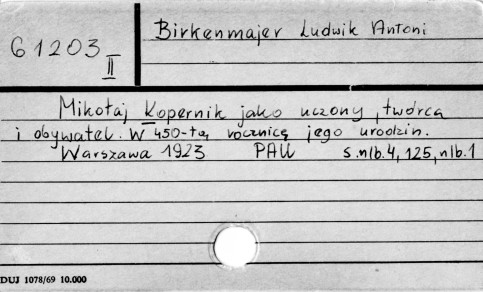 Birkenmajer Ludwik Antoni
61203
II
Mikołaj Kopernik jako uczony, twórca
i obywatel. W 450-tą rocznicę jego urodzin.
Warszawa 1923 PAU s. nlb. 4, 125, nlb. 1
DUJ 1078/69 10.000